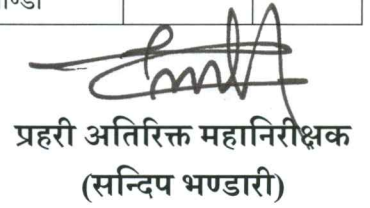 प्रहरी अतिरिक्त महानिरीक्षक
(सन्दिप भण्डारी)